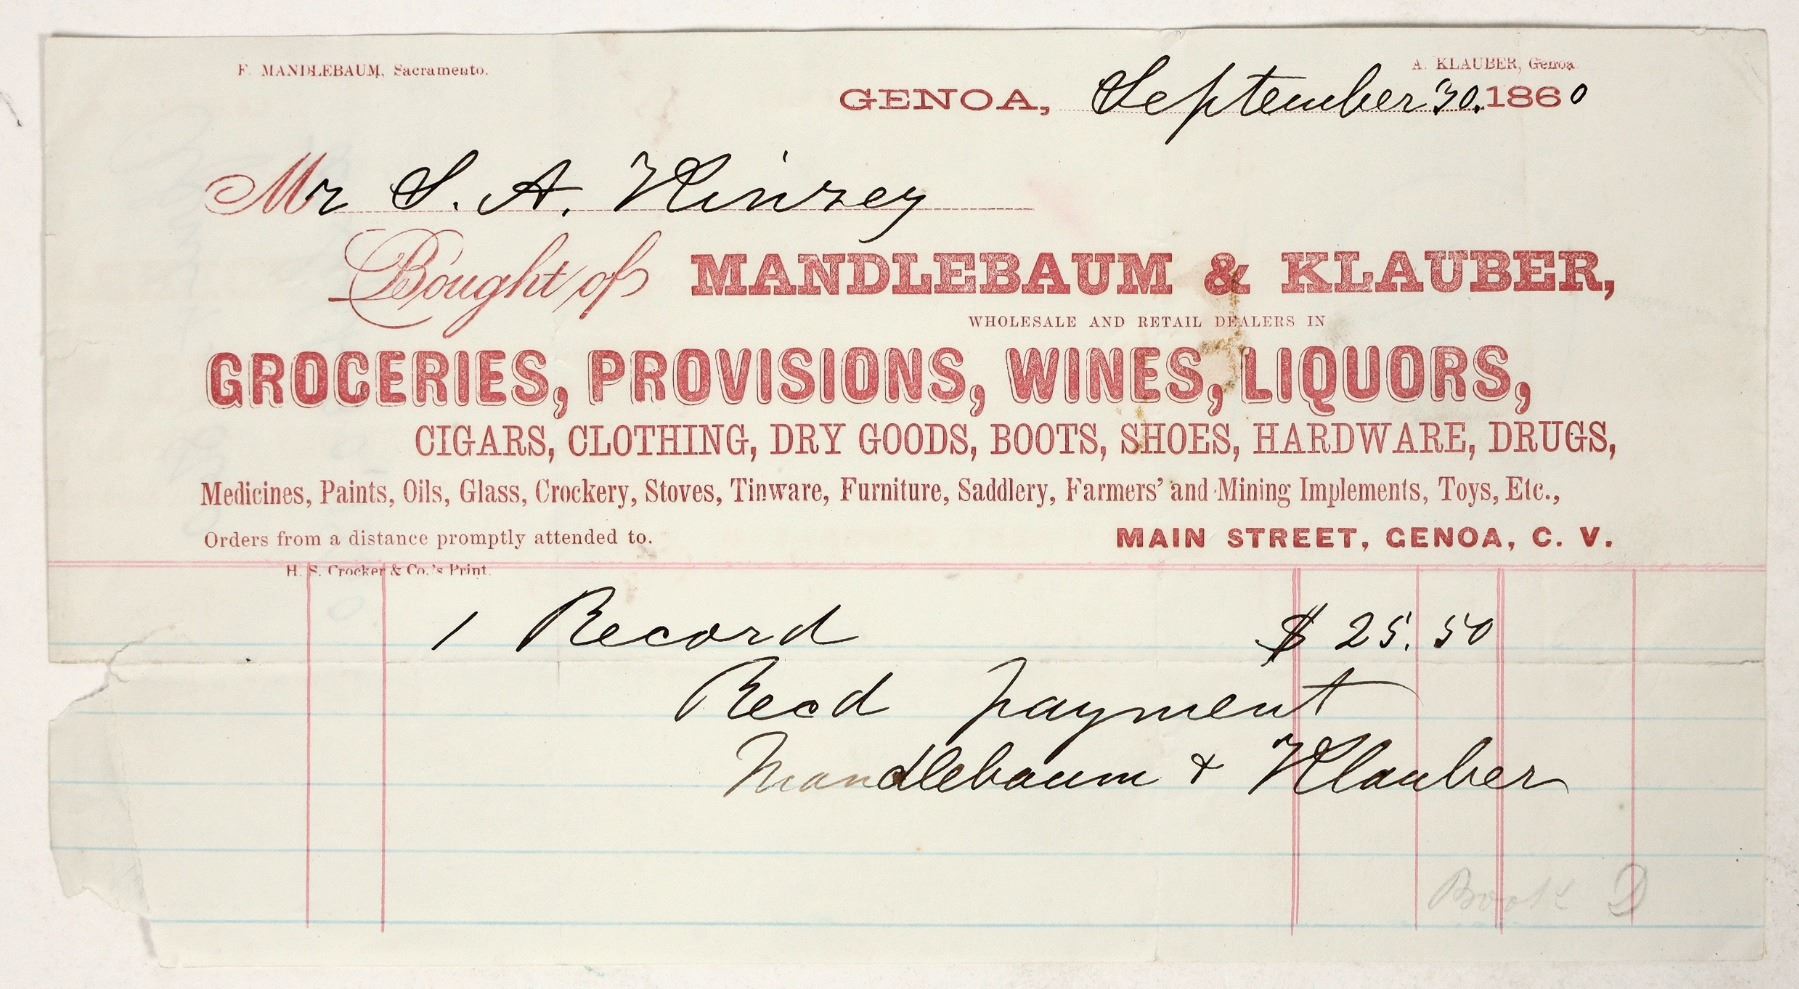 F. MANDLEBAUM, Sacramento.
A. KLAUBER, Genoa.
GENOA, September 30. 1860
Mr S. A. Kinsey
Bought of MANDLEBAUM & KLAUBER,
WHOLESALE AND RETAIL DEALERS IN
GROCERIES, PROVISIONS, WINES, LIQUORS,
CIGARS, CLOTHING, DRY GOODS, BOOTS, SHOES, HARDWARE, DRUGS,
Medicines, Paints, Oils, Glass, Crockery, Stoves, Tinware, Furniture, Saddlery, Farmers' and Mining Implements, Toys, Etc.,
Orders from a distance promptly attended to.
MAIN STREET, GENOA, C. V.
H. S. Crocker & Co.'s Print.
1 Record $ 25.50
Recd payment
Mandlebaum + Klauber
Book D